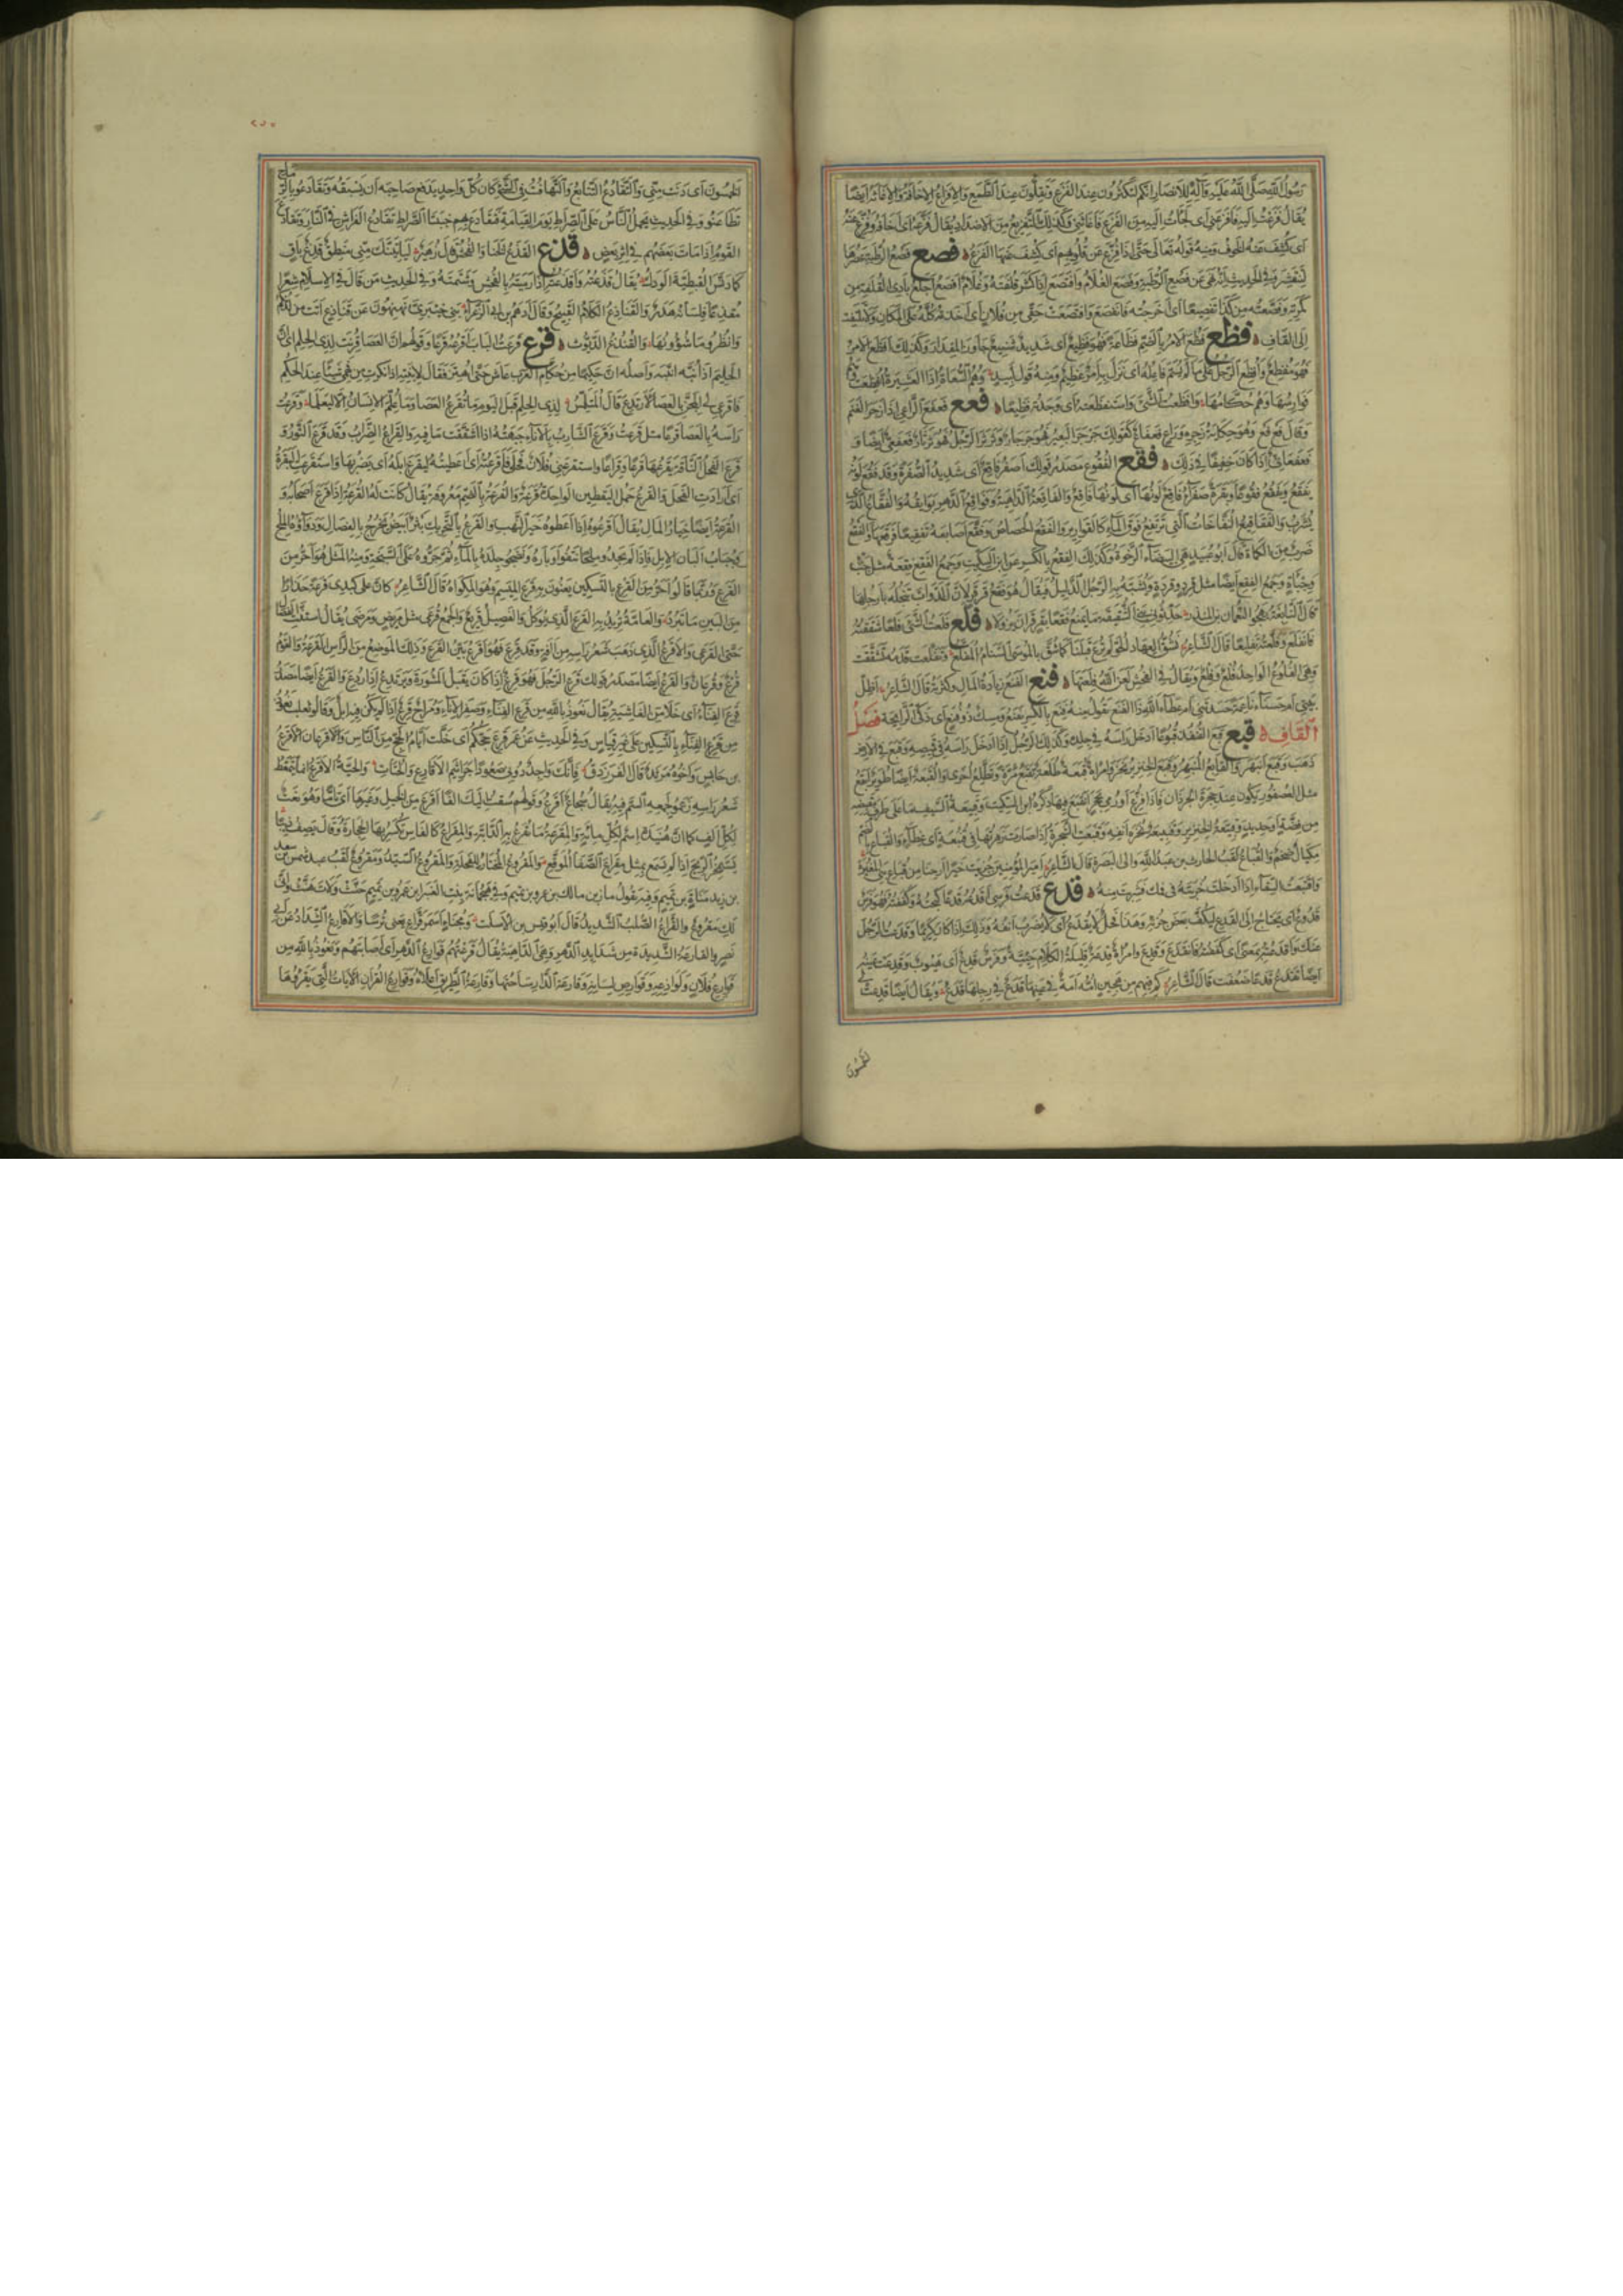 رسول الله صلى الله عليه وآله للانصار انكم لتكثرون عند الفزع وتقلون عند الطمع والافزاع الاخافة والاغاثة ايضا
يقال فزعت اليه فافزعني اى لجأت اليه من الفزع فاغاثني وكذلك التفزيع من الاضداد يقال فزعه اى اخافه وفزع عنه
اى كشف عنه الخوف ومنه قوله تعالى حتى اذا فزع عن قلوبهم اى كشف عنها الفزع فصع فصع الرطبة عصرها
لتنقشر وفي الحديث انه نهى عن فصع الرطبة وفصع الغلام وافتصع اذا كشر قلفته وغلام افصع اجلع بادى القلفة من
كمرته وفصعته من كذا تفصيعا اى اخرجته فانفصع وافتصعت حقى من فلان اى اخذته كله على المكان
الى القاف فظع فظع الامر بالضم فظاعة فهو فظيع اى شديد شنيع جاوز المقدار وكذلك افظع الامر
فهو مفظع وافظع الرجل على ما لم يسم فاعله اى نزل به امر عظيم ومنه قول لبيد وهم السعاة اذا العشيرة افظعت وهم
فوارسها وهم حكامها وافظعت الشئ واستفظعته اى وجدته فظيعا فعع فعفع الراعي اذا زجر الغنم
وقال فع فع وهو حكاية زجره وراع فعفاع كقولك جرجر البعير فهو جرجار وثرثر الرجل فهو ثرثار وفعفعى ايضا و
فعفعانى اذا كان خفيفا في ذلك فقع الفقوع مصدر قولك اصفر فاقع اى شديد الصفرة وقد فقع لونه
يفقع ويفقع فقوعا وبقرة صفراء فاقع لونها اى لونها فاقع والفاقعة الداهية وفواقع الدهر بوائقه والفقاع الذى
يشرب والفقاقيع النفاخات التي ترتفع فوق الماء كالقوارير والفقع الحصاص وفقع اصابعه تفقيعا فرقعها والفقع
ضرب من الكماة قال ابو عبيد هي البيضاء الرخوة وكذلك الفقع بالكسر عن ابن السكيت وجمع الفقع فقعة مثل جبء
وجبأة وجمع الفقع ايضا مثل قرد وقردة ويشبه به الرجل الذليل فيقال هو فقع قرقر لان الدواب تنجله بارجلها
قال النابغة يهجو النعمان بن المنذر حدثوني بني الشقيقة ما يمنع فقعا بقرقر ان يزولا فلع فلعت الشئ فلعا شققته
فانفلع وفلعته تفليعا قال الشاعر نشق العهاد الحو لم ترع قبلنا كما شق بالموسى السنام المفلع وتفلعت قدمه تشققت
وهي الفلوع الواحد فلع وفلع ويقال في الفحش لعن الله فلعتها فنع الفنع زيادة المال وكثرته قال الشاعر اظل
بيتي ام حسناء ناعمة حسدتني ام عطاء الله ذا الفنع تقول منه فنع بالكسر يفنع ومسك ذو فنع اى ذكى الرائحة فصل
القاف قبع قبع القنفذ قبوعا ادخل راسه في جلده وكذلك الرجل اذا ادخل راسه في قميصه وقبع في الارض
ذهب وقبع انبهر والقابع المنبهر وقبع الخنزير نخر وامراة قبعة طلعة تقبع مرة وتطلع اخرى والقبعة ايضا طوير ابقع
مثل العصفور يكون عند جحرة الجرذان فاذا فزع او رمي بحجر انقبع فيها ذكره ابن السكيت وقبيعة السيف ما على طرف مقبضه
من فضة او حديد وقبيعة الخنزير وقنبيعة نخرة انفه وقنبعت الشجرة اذا صارت زهرتها في قنبعة اى غطاء والقباع بالضم
مكيال ضخم والقباع لقب الحارث بن عبد الله والى البصرة قال الشاعر امير المؤمنين جزيت خيرا ارحنا من قباع بني المغيرة
واقتبعت السقاء اذا ادخلت خربته في فمك فشربت منه قدع قدعت فرسي اقدعه قدعا كبحته وكففته فهو فرس
قدوع اى يحتاج الى القدع ليكف بعض جريه وهذا فحل لا يقدع اى لا يضرب انفه وذلك اذا كان كريما وقدعت الرجل
عنك واقدعته بمعنى اى كففته فانقدع وقدع وامراة قدعة قليلة الكلام حيية وفرس قدع اى هيوب وقدعت عينه
ايضا تقدع قدعا ضعفت قال الشاعر كم فيهم من هجين امه امة في عينها قدع في رجلها فدع ويقال ايضا قدعت لي
لخمسون
٢٥٧
الخمسون اى دنت مني والتقادع التتابع والتهافت في الشئ كان كل واحد يدفع صاحبه ان يسبقه وتقادعوا بالرماح
تطاعنوا وفي الحديث يحمل الناس على الصراط يوم القيامة فتقادع بهم جنبتا الصراط تقادع الفراش في النار وتقادع
القوم اذا مات بعضهم في اثر بعض قذع القذع الخنا والفحش قال زهير ليأتينك مني منطق قذع باق
كما دنس القبطية الودك يقال قذعته واقذعته اذا رميته بالفحش وشتمته وفي الحديث من قال في الاسلام شعرا
مقذعا فلسانه هدر والقناذع الكلام القبيح وقال ادهم بن ابي الزعراء بني خيبري نهنهوا عن قناذع اتت من لدنكم
وانظروا ما شؤونها والقنذع الديوث قرع قرعت الباب اقرعه قرعا وقولهم ان العصا قرعت لذى الحلم اى ان
الحليم اذا نبه انتبه واصله ان حكيما من حكام العرب عاش حتى اهتر فقال لابنته اذا انكرت من فهمي شيئا عند الحكم
فاقرعي لي المجن بالعصا لارتدع قال المتلمس لذى الحلم قبل اليوم ما تقرع العصا وما علم الانسان الا ليعلما وقرعت
راسه بالعصا قرعا مثل فرعت وقرع الشارب بالاناء جبهته اذا اشتف ما فيه والقراع الضراب وقد قرع الثور و
قرع الفحل الناقة يقرعها قرعا وقراعا واستقرعني فلان فحلي فاقرعته اى اعطيته ليقرع ابله اى يضربها واستقرعت البقرة
اى ارادت الفحل والقرع حمل اليقطين الواحدة قرعة والقرعة بالضم معروفة يقال كانت له القرعة اذا قرع اصحابه و
القرعة ايضا خيار المال يقال اقرعوه اذا اعطوه خير النهب والقرع بالتحريك بثر ابيض يخرج بالفصال ودواؤه الملح
وجباب البان الابل فاذا لم يجدوا ملحا نتفوا اوباره ونضحوا جلده بالماء ثم جروه على السبخة ومنه المثل هو احر من
القرع وربما قالوا احر من القرع بالتسكين يعنون به قرع الميسم وهو المكواة قال الشاعر كان على كبدى قرعة حذارا
من البين ما تبرد والعامة تريد به القرع الذى يوكل والفصيل قريع والجمع قرعى مثل مريض ومرضى يقال استنت الفصال
حتى القرعى والاقرع الذى ذهب شعر راسه من افة وقد قرع فهو اقرع بين القرع وذلك الموضع من الراس القرعة والقوم
قرع وقرعان والقرع ايضا مصدر قولك قرع الرجل فهو قرع اذا كان يقبل المشورة ويرتدع اذا ردع والقرع ايضا مصدر
قرع الفناء اى خلا من الغاشية يقال نعوذ بالله من قرع الفناء وصفر الاناء ومراح قرع اذا لم يكن فيه ابل وقال ثعلب نعوذ
من قرع الفناء بالتسكين على غير قياس وفي الحديث عن عمر قرع حجكم اى خلت ايام الحج من الناس والاقرعان الاقرع
بن حابس واخوه مرثد قال الفرزدق فانك واجد دوني صعودا جراثيم الاقارع والحتات والحية الاقرع انما يتمعط
شعر راسه زعموا لجمعه السم فيه يقال شجاع اقرع وقولهم سقت اليك الفا اقرع من الخيل وغيرها اى تاما وهو نعت
لكل الف كما ان هنيدة اسم لكل مائة والمقرعة ما تقرع به الدابة والمقراع كالفاس تكسر بها الحجارة وقال يصف ذئبا
يستمخر الريح اذا لم يسمع بمثل مقراع الصفا الموقع والمقروع المختار للفحلة والمقروع السيد ومقروع لقب عبد شمس بن سعد
بن زيد مناة بن تميم وفيه يقول مازن بن مالك بن عمرو بن تميم وفي هيجمانة بنت العنبر بن عمرو بن تميم حنت ولات هنت وانى
لك مقروع والقراع الصلب الشديد قال ابو قيس بن الاسلت ومجناء اسمر قراع يعني ترسا والاقارع الشداد عن ابي
نصر والقارعة الشديدة من شدايد الدهر وهي الداهية يقال قرعتهم قوارع الدهر اى اصابتهم ونعوذ بالله من
قوارع فلان ولواذعه وقوارص لسانه وقارعة الدار ساحتها وقارعة الطريق اعلاه وقوارع القران الايات التي يقرؤها